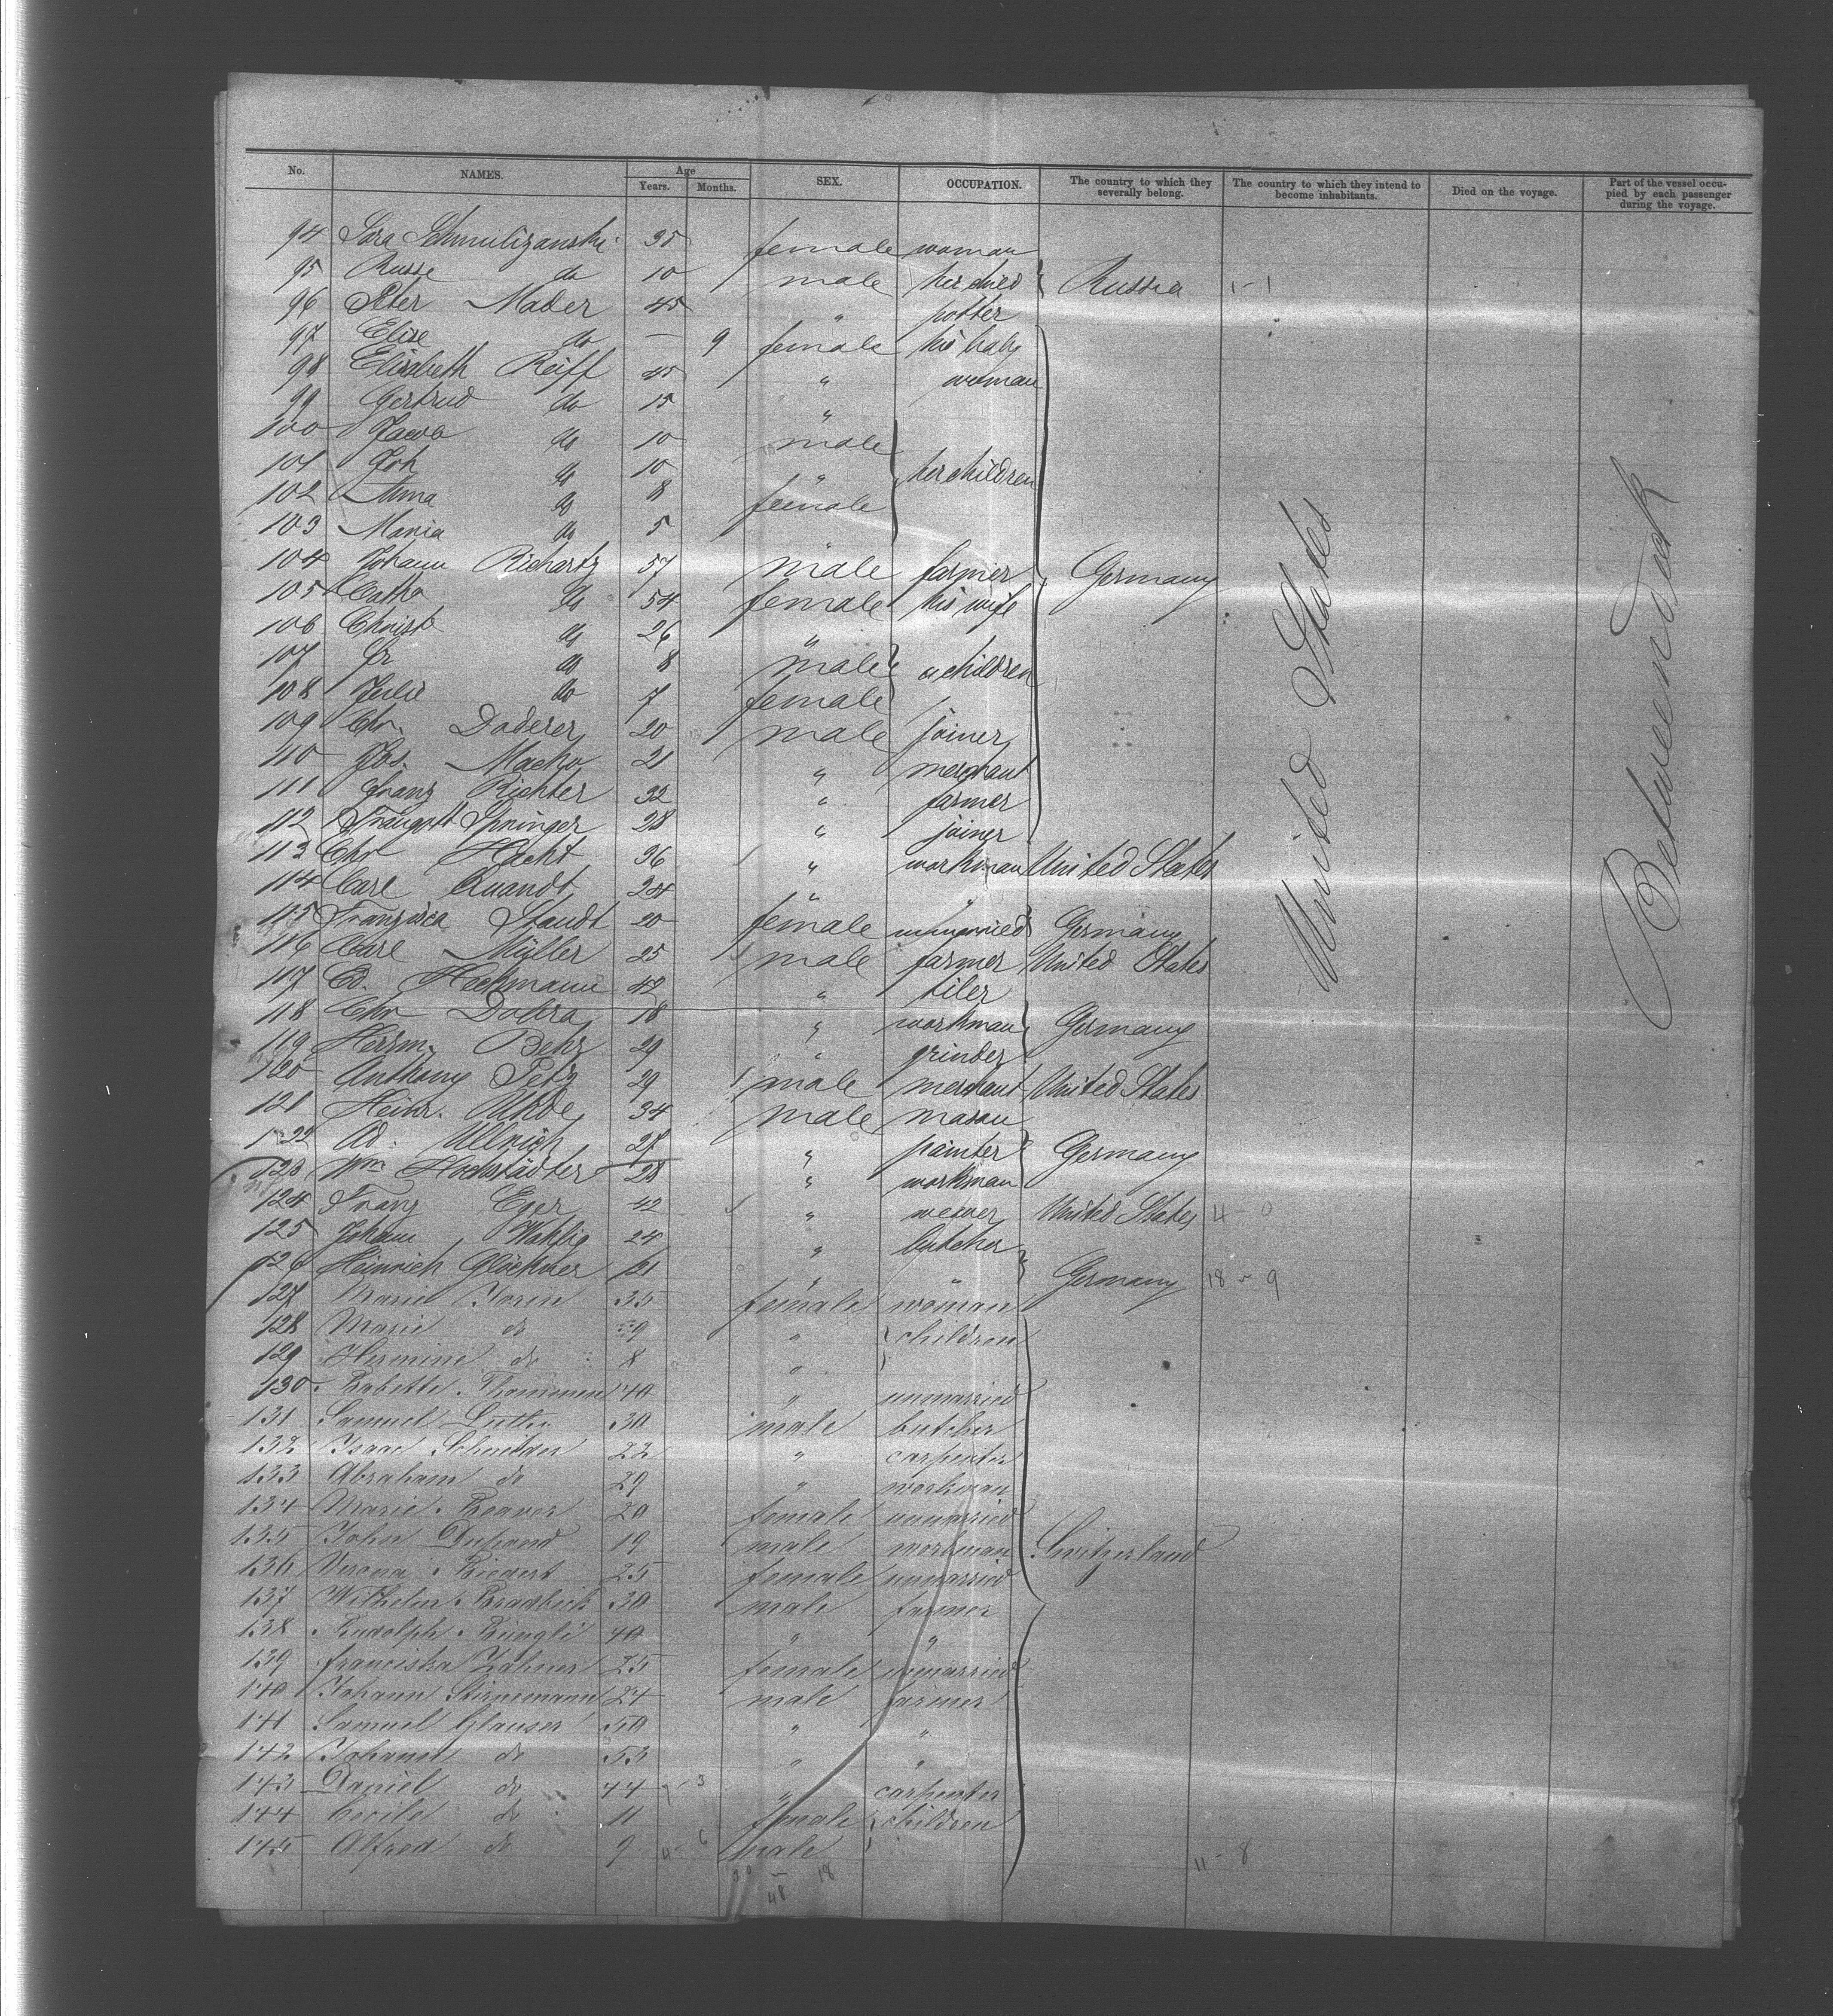 No. NAMES. Age Years. Months. SEX. OCCUPATION. The country to which they severally belong. The country to which they intend to become inhabitants. Died on the voyage. Part of the vessel occupied by each passenger during the voyage.
94 Sara Schmulizanski 35 female woman
95 Russe do 10 male her child Russia 1-1
96 Peter Mader 45 " potter
97 Elise do — 9 female his baby
98 Elisabeth Reiff 45 " woman
99 Gertrud do 15 "
100 Jacob do 10 male
101 Joh do 10 " her children
102 Anna do 8 female
103 Maria do 5
104 Johann Richartz 57 male farmer Germany
105 Cath do 54 female his wife
106 Christ do 26 "
107 Fr do 8 male children
108 Julie do 7 female
109 Chr. Doderer 20 male joiner
110 Jos. Macho 21 " merchant
111 Franz Richter 32 " farmer
112 Traugott Springer 28 " joiner
113 Chr Hecht 36 " workman United States
114 Carl Quandt 24 " "
115 Franzisca Staudt 20 female unmarried Germany
116 Carl Müller 25 male farmer United States
117 Ed. Hockmann 42 " tiler
118 Chr Dobra 18 " workman Germany
119 Herrm. Behr 29 " grinder
120 Anthony Petz 29 male merchant United States
121 Heinr. Uhde 34 male mason
122 Ad. Ullrich 27 " painter Germany
123 Wm Hochstädter 28 " workman
124 Franz Eger 42 " weaver United States 4 - 0
125 Johann Wahlig 24 " butcher
126 Heinrich Glöckner 21 " " Germany 18 - 9
127 Marie 35 female woman
128 Marie do 9 " children
129 Hermine do 8 "
130 Babette Thommen 40 " unmarried
131 Samuel 30 male butcher
132 Isaac Schneider 22 " carpenter
133 Abraham do 29 " workman
134 Marie 20 female unmarried
135 John Durand 19 male workman Switzerland
136 Verena 25 female unmarried
137 Wilhelm 30 male farmer
138 Rudolph 40 " "
139 Franciska 25 female unmarried
140 Johann Stirnemann 24 male farmer
141 Samuel Glauser 50 " "
142 Johann do 53 " "
143 Daniel do 44 " carpenter
144 Cecile do 11 female children
145 Alfred do 9 male
11 - 8
48 18
United States
Betweendeck